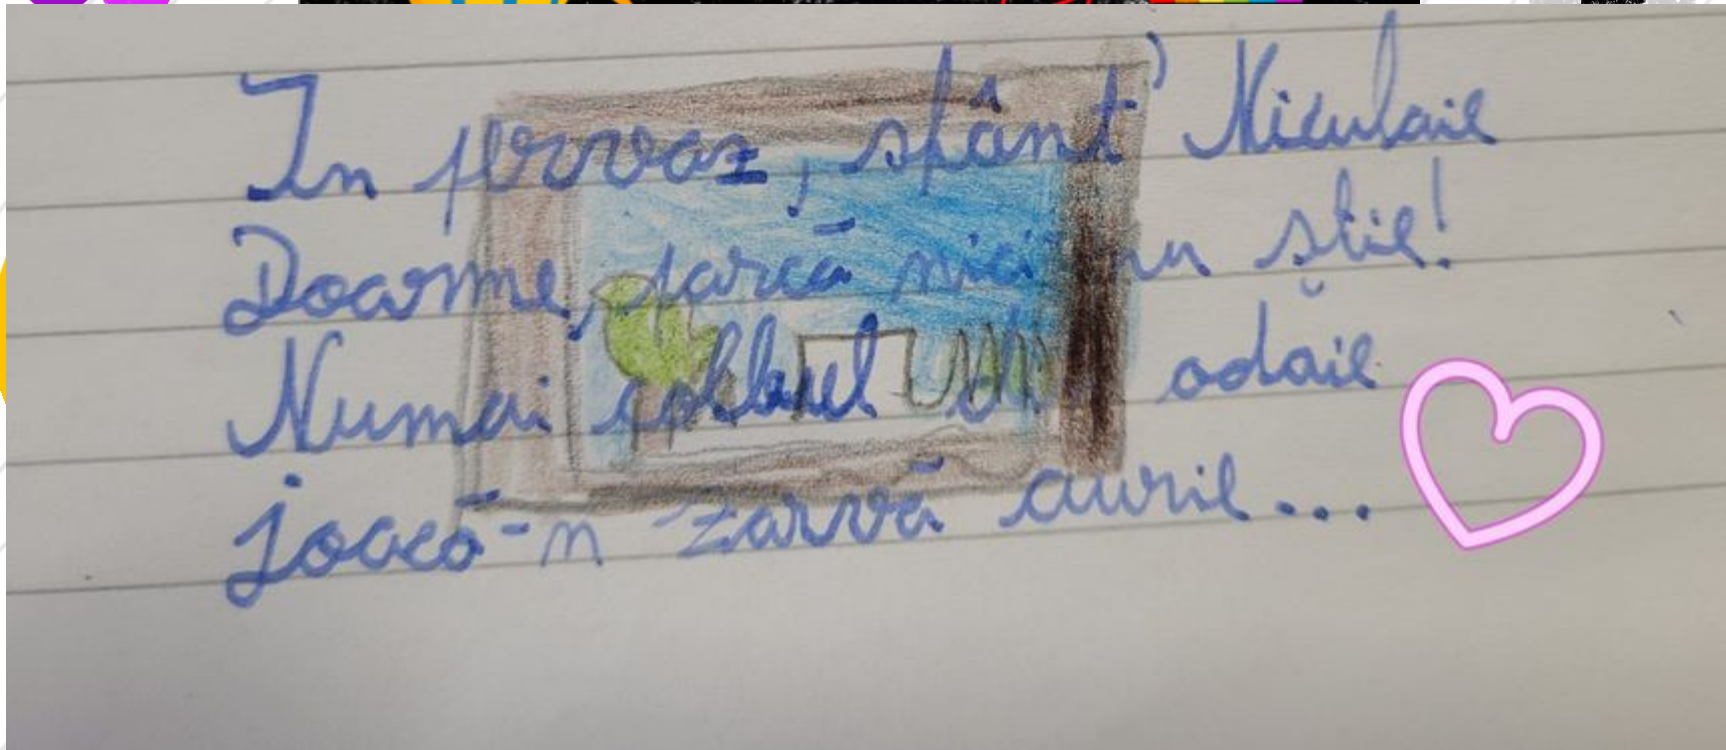 In pervaz, sfânt' Niculaie
Doarme, parcă nici nu știe!
Numai colbul din odaie
joacă-n zarvă aurie...